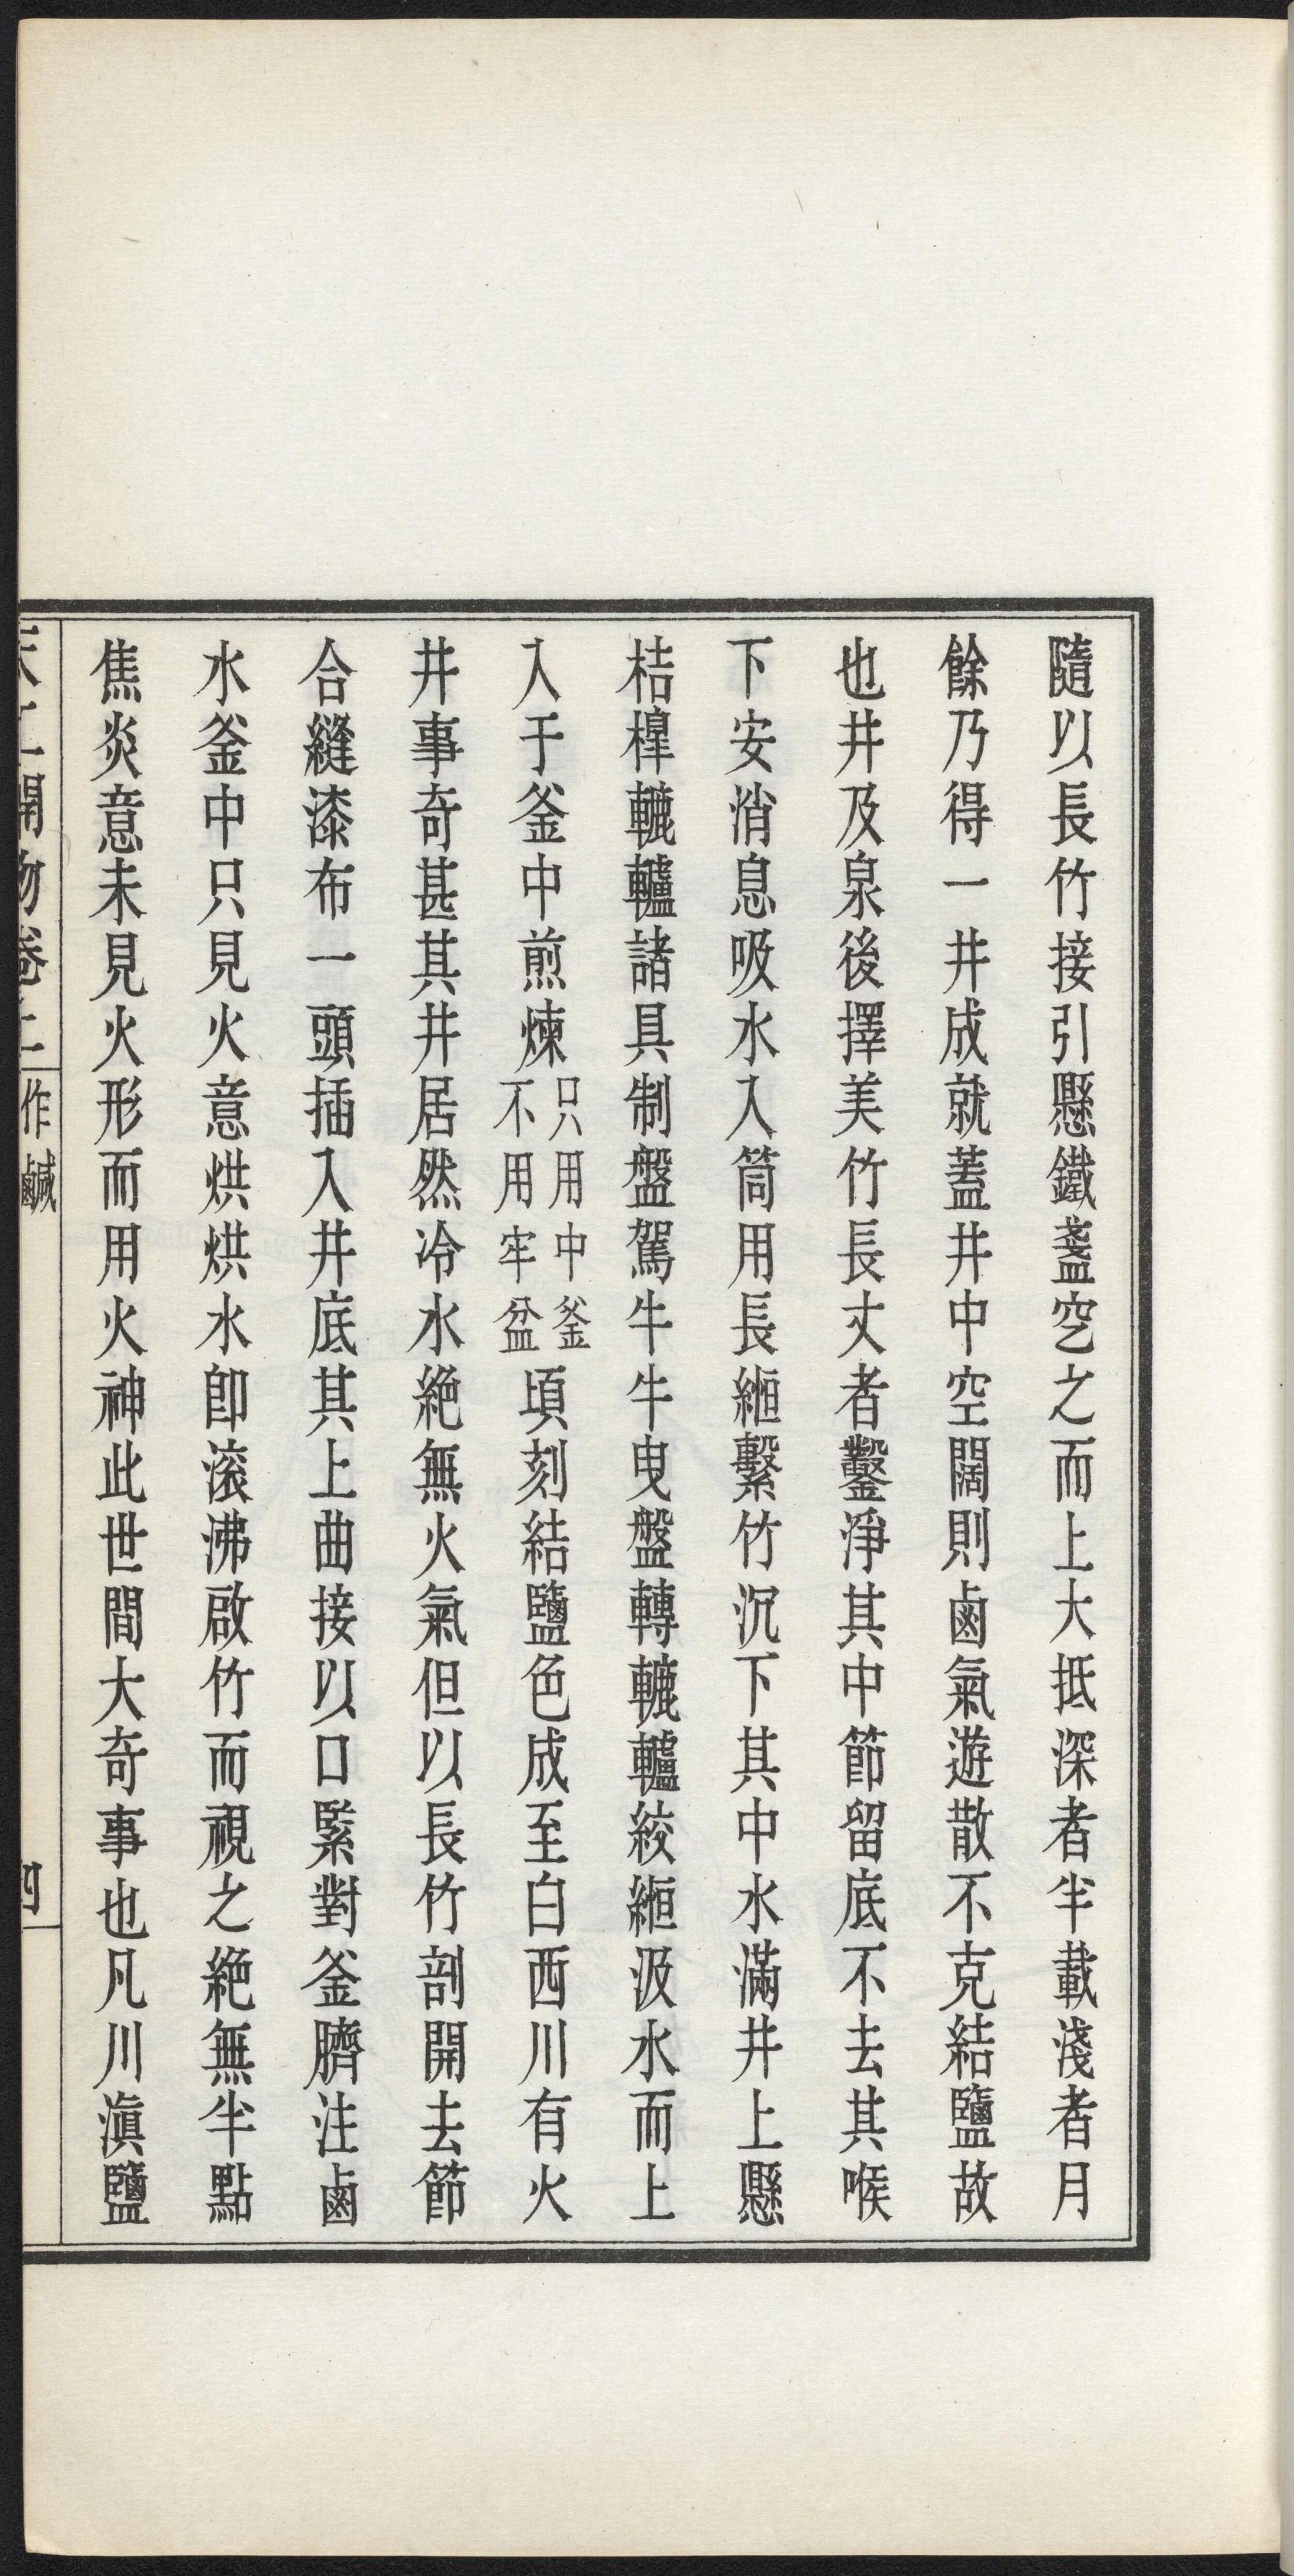 隨以長竹接引懸鐵盞空之而上大抵深者半載淺者月
餘乃得一井成就蓋井中空闊則鹵氣遊散不克結鹽故
也井及泉後擇美竹長丈者鑿淨其中節留底不去其喉
下安消息吸水入筒用長絙繫竹沉下其中水滿井上懸
桔槔轆轤諸具制盤駕牛牛曳盤轉轆轤絞絙汲水而上
入于釜中煎煉只用中釜不用牢盆頃刻結鹽色成至白西川有火
井事奇甚其井居然冷水絕無火氣但以長竹剖開去節
合縫漆布一頭插入井底其上曲接以口緊對釜臍注鹵
水釜中只見火意烘烘水卽滚沸啟竹而視之絕無半點
焦炎意未見火形而用火神此世間大奇事也凡川滇鹽
天工開物卷上 作鹹 四